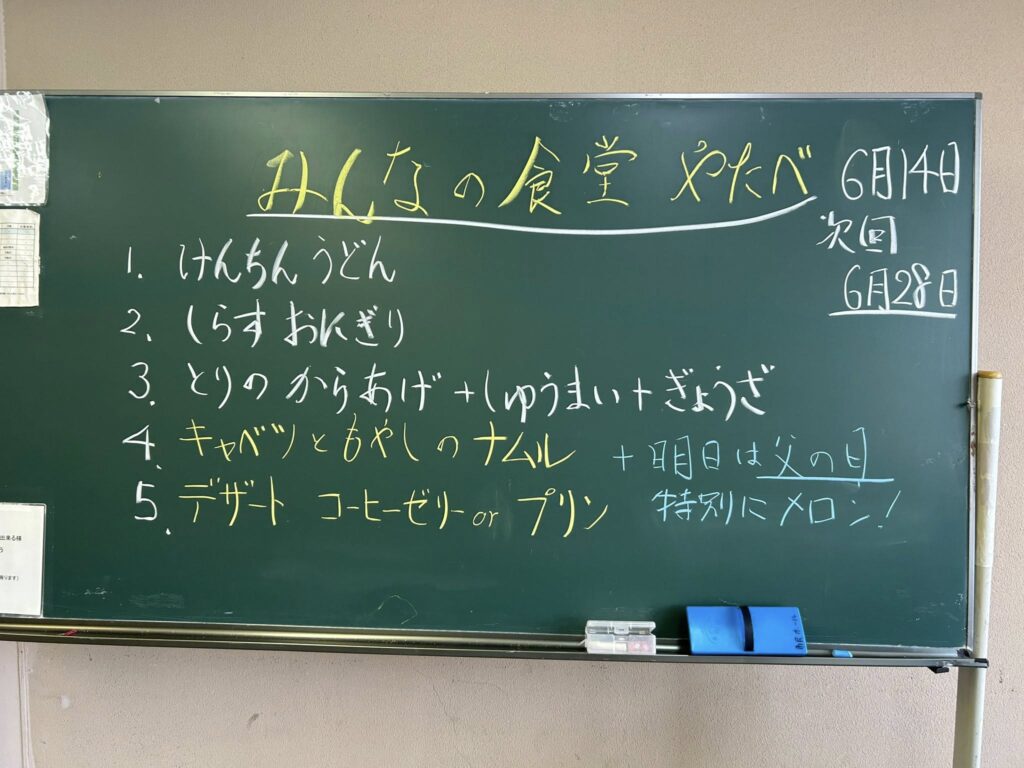 みんなの食堂 やたべ
6月14日
次回
6月28日
1. けんちんうどん
2. しらすおにぎり
3. とりのからあげ+しゅうまい+ぎょうざ
4. キャベツともやしのナムル
+明日は父の日
5. デザート コーヒーゼリーor プリン
特別にメロン!
出来る様
う
有ります)